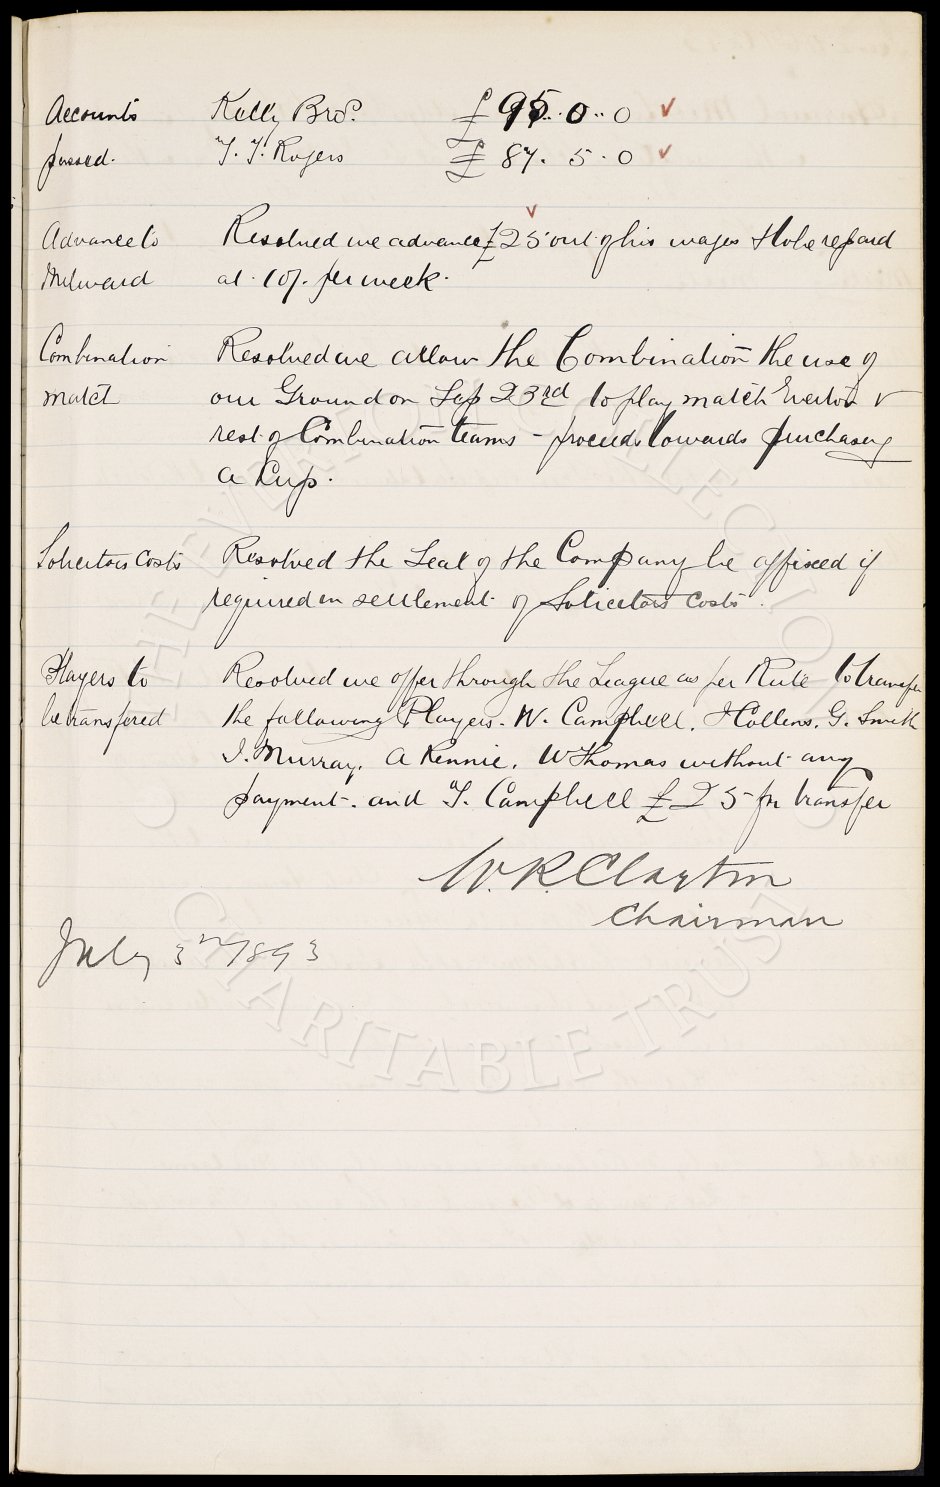 Accounts Kelly Bros. £ 95..0..0 ✓
passed. T. T. Rogers £ 87. 5. 0 ✓
Advance to Resolved we advance £25 out of his wages & to be repaid
Milward at 10/. per week.
Combination Resolved we allow the Combination the use of
match our Ground on Sep 23rd to play match Everton v
rest of Combination teams – proceeds towards purchasing
a Cup.
Solicitors Costs Resolved the Seal of the Company be affixed if
required in settlement of Solicitors Costs.
Players to Resolved we offer through the League as per Rule to transfer
be transfered the following Players. W. Campbell, J Collins, G. Smith
J. Murray, A Rennie, W Thomas without any
payment. and T. Campbell £25 for transfer
W. R. Clayton
Chairman
July 3rd/1893
THE EVERTON COLLECTION
CHARITABLE TRUST